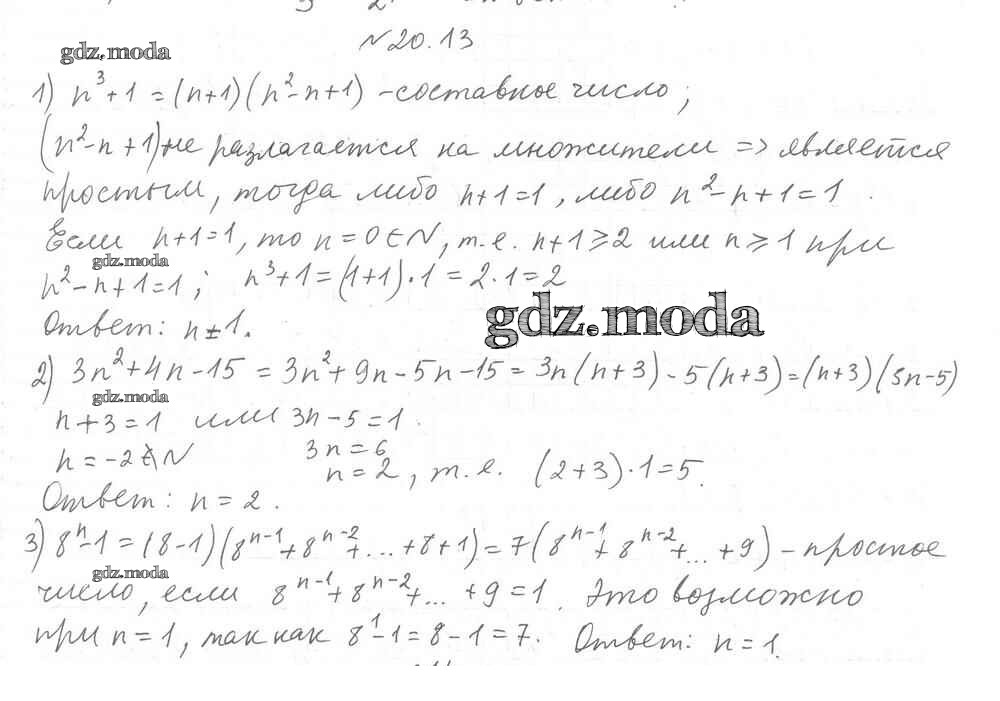 №20.13
gdz.moda
1) n³+1 = (n+1)(n²-n+1) - составное число;
(n²-n+1) не разлагается на множители => является
простым, тогда либо n+1=1, либо n²-n+1=1.
Если n+1=1, то n=0∈N, т.е. n+1≥2 или n≥1 при
gdz.moda
n²-n+1=1; n³+1=(1+1)·1=2·1=2
gdz.moda
Ответ: n=1.
2) 3n²+4n-15 = 3n²+9n-5n-15 = 3n(n+3)-5(n+3)=(n+3)(3n-5)
gdz.moda
n+3=1 или 3n-5=1.
n=-2∉N 3n=6
n=2, т.е. (2+3)·1=5.
Ответ: n=2.
3) 8ⁿ-1=(8-1)(8ⁿ⁻¹+8ⁿ⁻²+...+8+1)=7(8ⁿ⁻¹+8ⁿ⁻²+...+9) - простое
gdz.moda
число, если 8ⁿ⁻¹+8ⁿ⁻²+...+9=1. Это возможно
при n=1, так как 8¹-1=8-1=7. Ответ: n=1.